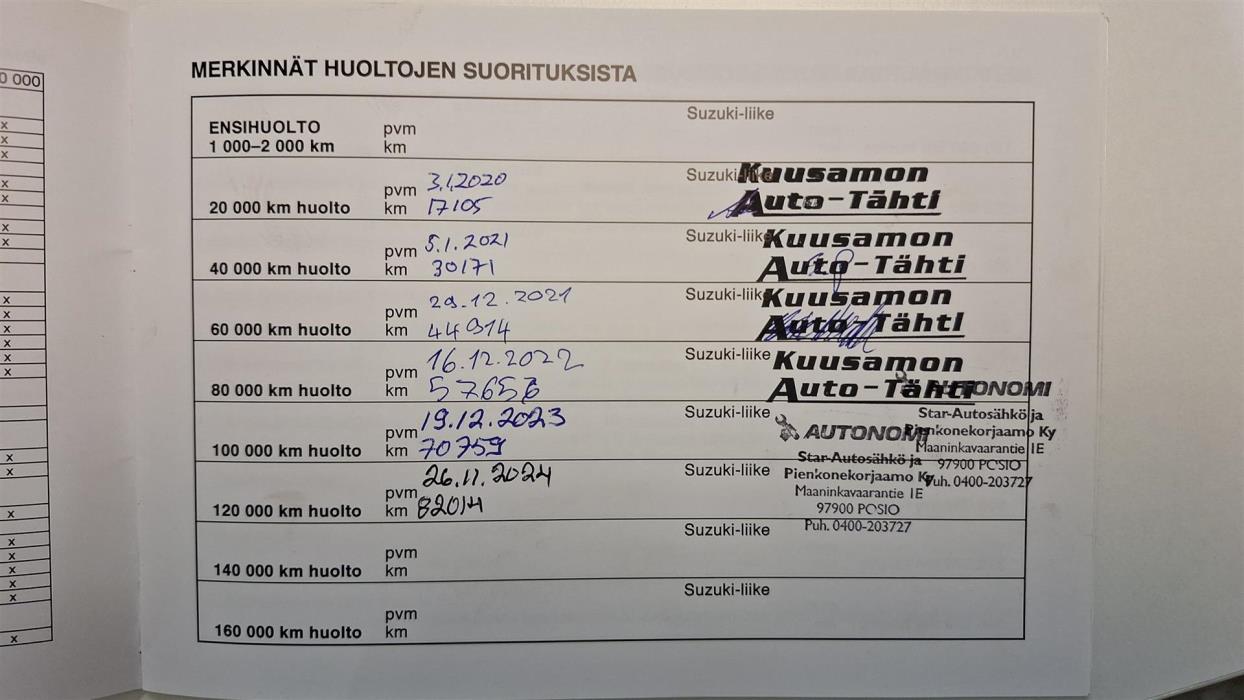 0 000
x
x
x
x
x
x
x
x
x
x
x
x
x
x
x
x
x
x
x
x
x
x
MERKINNÄT HUOLTOJEN SUORITUKSISTA
ENSIHUOLTO
1 000–2 000 km
pvm
km
Suzuki-liike
20 000 km huolto
pvm 3.1.2020
km 17105
Suzuki-liike
Kuusamon
Auto-Tähti
40 000 km huolto
pvm 5.1.2021
km 30171
Suzuki-liike
Kuusamon
Auto-Tähti
60 000 km huolto
pvm 29.12.2021
km 44914
Suzuki-liike
Kuusamon
Auto-Tähti
80 000 km huolto
pvm 16.12.2022
km 57656
Suzuki-liike
Kuusamon
Auto-Tähti
AUTONOMI
Star-Autosähkö ja
Pienkonekorjaamo Ky
Maaninkavaarantie 1E
97900 POSIO
Puh. 0400-203727
100 000 km huolto
pvm 19.12.2023
km 70759
Suzuki-liike
AUTONOMI
Star-Autosähkö ja
Pienkonekorjaamo Ky
Maaninkavaarantie 1E
97900 POSIO
Puh. 0400-203727
120 000 km huolto
pvm 26.11.2024
km 82014
Suzuki-liike
140 000 km huolto
pvm
km
Suzuki-liike
160 000 km huolto
pvm
km
Suzuki-liike